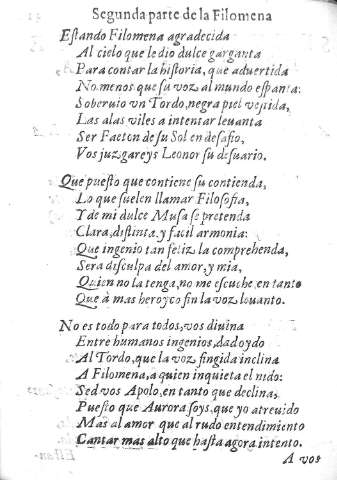 Segunda parte de la Filomena
Estando Filomena agradecida
Al cielo que le dio dulce garganta
Para contar la historia, que aduertida
No menos que su voz al mundo espanta:
Soberuio vn Tordo, negra piel vestida,
Las alas viles a intentar leuanta
Ser Faeton de su Sol en desafio,
Vos juzgareys Leonor su desuario.
Que puesto que contiene su contienda,
Lo que suelen llamar Filosofia,
Y de mi dulce Musa se pretenda
Clara, distinta, y facil armonia:
Que ingenio tan feliz la comprehenda,
Sera disculpa del amor, y mia,
Quien no la tenga, no me escuche, en tanto
Que à mas heroyco fin la voz leuanto.
No es todo para todos, vos diuina
Entre humanos ingenios, dad oydo
Al Tordo, que la voz fingida inclina
A Filomena, a quien inquieta el nido:
Sed vos Apolo, en tanto que declina,
Puesto que Aurora soys, que yo atreuido
Mas al amor que al rudo entendimiento
Cantar mas alto que hasta agora intento.
A vos